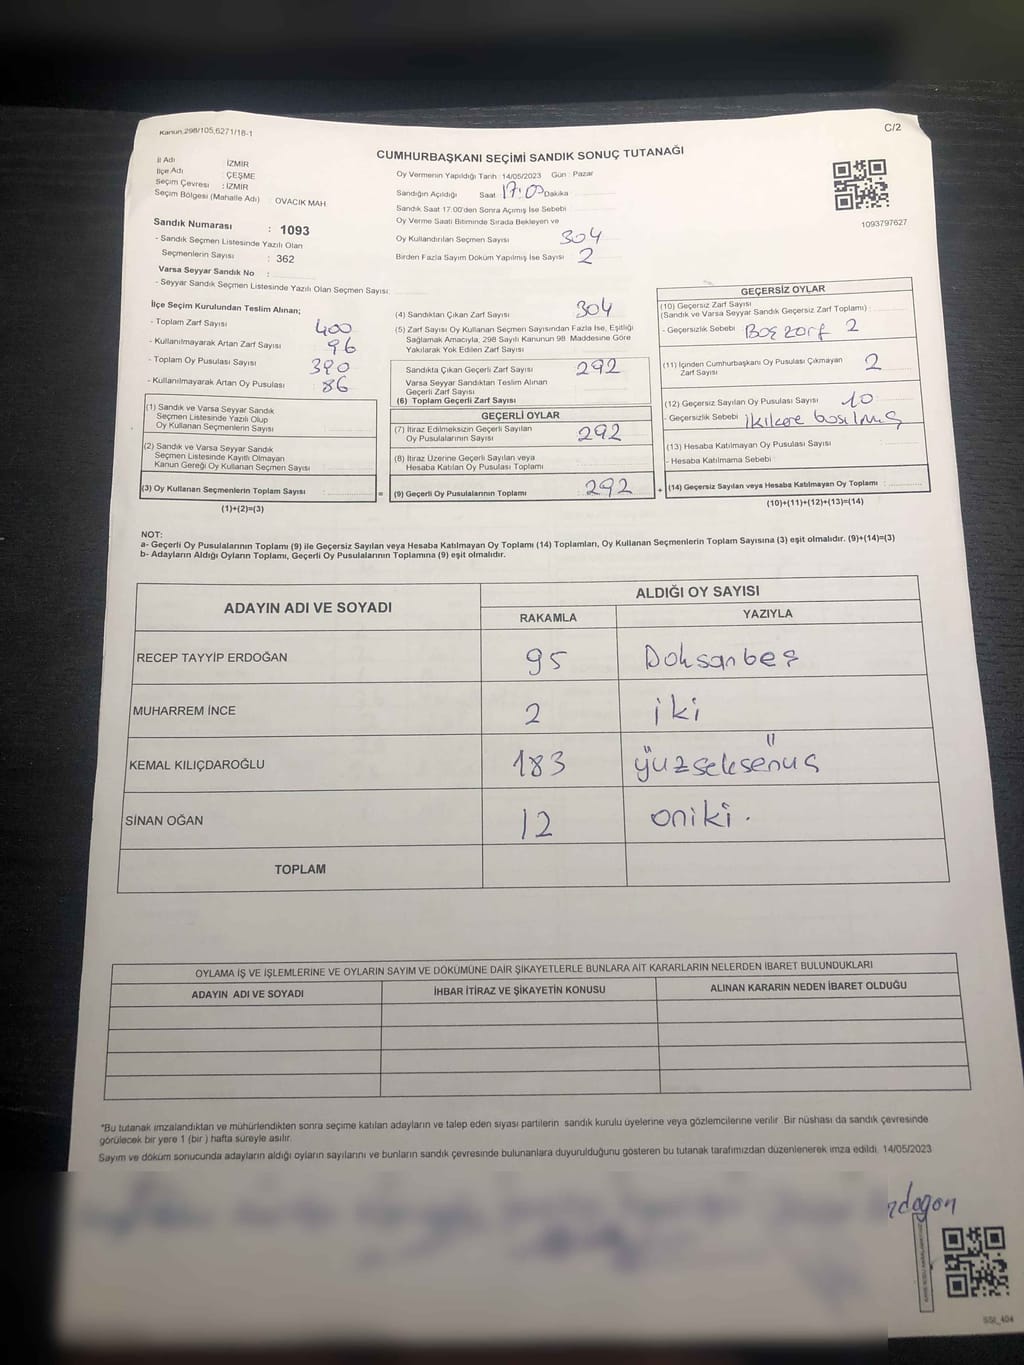 Kanun,298/105,6271/18-1
C/2
CUMHURBAŞKANI SEÇİMİ SANDIK SONUÇ TUTANAĞI
İl Adı İZMİR
İlçe Adı : ÇEŞME
Seçim Çevresi : İZMİR
Seçim Bölgesi (Mahalle Adı) : OVACIK MAH
Sandık Numarası : 1093
- Sandık Seçmen Listesinde Yazılı Olan
Seçmenlerin Sayısı : 362
Varsa Seyyar Sandık No :
- Seyyar Sandık Seçmen Listesinde Yazılı Olan Seçmen Sayısı:
Oy Vermenin Yapıldığı Tarih :14/05/2023 Gün : Pazar
Sandığın Açıldığı Saat 17:0 Dakika
Sandık Saat 17.00'den Sonra Açımış İse Sebebi
Oy Verme Saati Bitiminde Sırada Bekleyen ve
Oy Kullandırılan Seçmen Sayısı 304
Birden Fazla Sayım Döküm Yapılmış İse Sayısı 2
1093797627
İlçe Seçim Kurulundan Teslim Alınan;
- Toplam Zarf Sayısı 400
- Kullanılmayarak Artan Zarf Sayısı 96
- Toplam Oy Pusulası Sayısı 390
- Kullanılmayarak Artan Oy Pusulası 86
(1) Sandık ve Varsa Seyyar Sandık
Seçmen Listesinde Yazılı Olup
Oy Kullanan Seçmenlerin Sayısı
(2) Sandık ve Varsa Seyyar Sandık
Seçmen Listesinde Kayıtlı Olmayan
Kanun Gereği Oy Kullanan Seçmen Sayısı
(3) Oy Kullanan Seçmenlerin Toplam Sayısı :
=
(1)+(2)=(3)
(4) Sandıktan Çıkan Zarf Sayısı 304
(5) Zarf Sayısı Oy Kullanan Seçmen Sayısından Fazla İse, Eşitliği
Sağlamak Amacıyla, 298 Sayılı Kanunun 98. Maddesine Göre
Yakılarak Yok Edilen Zarf Sayısı
Sandıkta Çıkan Geçerli Zarf Sayısı 292
Varsa Seyyar Sandıktan Teslim Alınan
Geçerli Zarf Sayısı
(6) Toplam Geçerli Zarf Sayısı
GEÇERLİ OYLAR
(7) İtiraz Edilmeksizin Geçerli Sayılan
Oy Pusulalarının Sayısı 292
(8) İtiraz Üzerine Geçerli Sayılan veya
Hesaba Katılan Oy Pusulası Toplamı
(9) Geçerli Oy Pusulalarının Toplamı 292
+
GEÇERSİZ OYLAR
(10) Geçersiz Zarf Sayısı
(Sandık ve Varsa Seyyar Sandık Geçersiz Zarf Toplamı) :
- Geçersizlik Sebebi Boş zarf 2
(11) İçinden Cumhurbaşkanı Oy Pusulası Çıkmayan
Zarf Sayısı 2
(12) Geçersiz Sayılan Oy Pusulası Sayısı 10
- Geçersizlik Sebebi ikikere basılmış
(13) Hesaba Katılmayan Oy Pusulası Sayısı
- Hesaba Katılmama Sebebi
(14) Geçersiz Sayılan veya Hesaba Katılmayan Oy Toplamı :
(10)+(11)+(12)+(13)=(14)
NOT:
a- Geçerli Oy Pusulalarının Toplamı (9) ile Geçersiz Sayılan veya Hesaba Katılmayan Oy Toplamı (14) Toplamları, Oy Kullanan Seçmenlerin Toplam Sayısına (3) eşit olmalıdır. (9)+(14)=(3)
b- Adayların Aldığı Oyların Toplamı, Geçerli Oy Pusulalarının Toplamına (9) eşit olmalıdır.
ADAYIN ADI VE SOYADI ALDIĞI OY SAYISI
RAKAMLA YAZIYLA
RECEP TAYYİP ERDOĞAN 95 Doksanbeş
MUHARREM İNCE 2 iki
KEMAL KILIÇDAROĞLU 183 yüzseksenüç
SİNAN OĞAN 12 oniki.
TOPLAM
OYLAMA İŞ VE İŞLEMLERİNE VE OYLARIN SAYIM VE DÖKÜMÜNE DAİR ŞİKAYETLERLE BUNLARA AİT KARARLARIN NELERDEN İBARET BULUNDUKLARI
ADAYIN ADI VE SOYADI İHBAR İTİRAZ VE ŞİKAYETİN KONUSU ALINAN KARARIN NEDEN İBARET OLDUĞU
*Bu tutanak imzalandıktan ve mühürlendikten sonra seçime katılan adayların ve talep eden siyasi partilerin sandık kurulu üyelerine veya gözlemcilerine verilir. Bir nüshası da sandık çevresinde
görülecek bir yere 1 (bir ) hafta süreyle asılır.
Sayım ve döküm sonucunda adayların aldığı oyların sayılarını ve bunların sandık çevresinde bulunanlara duyurulduğunu gösteren bu tutanak tarafımızdan düzenlenerek imza edildi. 14/05/2023